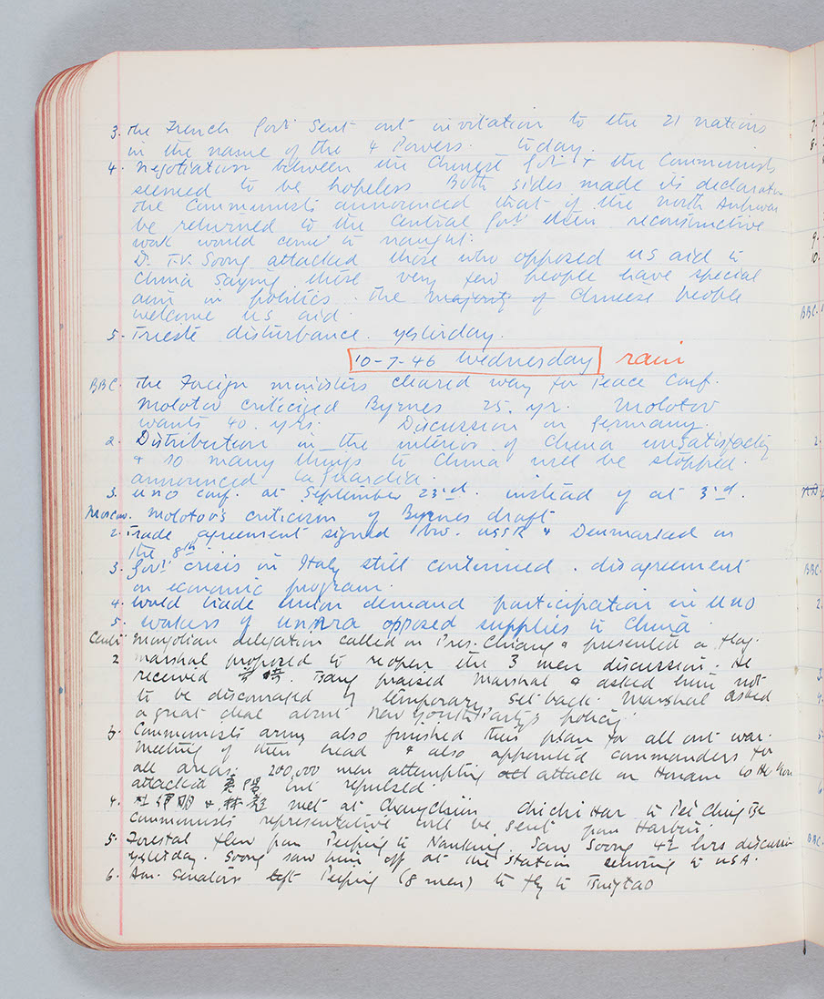 3. The French Gov't Sent out invitation to the 21 nations
in the name of the 4 Powers. today.
4. Negotiation between the Chinese Gov't & the Communists
seemed to be hopeless Both sides made its declaration
The Communists announced that if the north Anhwei
be returned to the Central Gov't then reconstructive
work would come to naught.
D. T.V. Soong attacked those who opposed US aid to
China saying these very few people have special
aim in politics. The majority of Chinese people
welcome US aid.
5. Trieste disturbance. yesterday.
10-7-46 Wednesday rain
BBC. The Foreign ministers cleared way for Peace Conf.
Molotov criticized Byrnes 25. yr. Molotov
wants 40. yrs. Discussion on Germany.
2. Distribution in the interior of China unsatisfactory
& so many things to China will be stopped.
announced LaGuardia.
3. UNO conf. at September 23rd. instead of at 3rd.
Moscow. Molotov's criticism of Byrnes draft
2. Trade agreement signed btw. USSR & Denmark on
the 8th.
3. Gov't crisis in Italy still continued. disagreement
on economic program.
4. World trade union demand participation in UNO
5. workers of UNRRA opposed supplies to China
Mongolian delegation called on Pres. Chiang & presented a flag.
2 Marshal proposed to reopen the 3 men discussion. He
received praised Marshal & asked him not
to be discouraged by temporary set back. Marshal asked
a great deal about New Youth Party's policy.
3. Communists army also finished their plan for all out war.
meeting of their head & also appointed commanders for
all areas. 200,000 men attempting attack on Honan to
attacked but repulsed.
4. & met at Changchun Chichihar to
Communists representative will be sent from Harbin.
5. Forestal flew from Peiping to Nanking. Saw Soong 4½ hrs discussion
yesterday. Soong saw him off at the station to USA.
6. Am. Senators left Peiping (8 men) to fly to Tsingtao
BBC.
BBC.